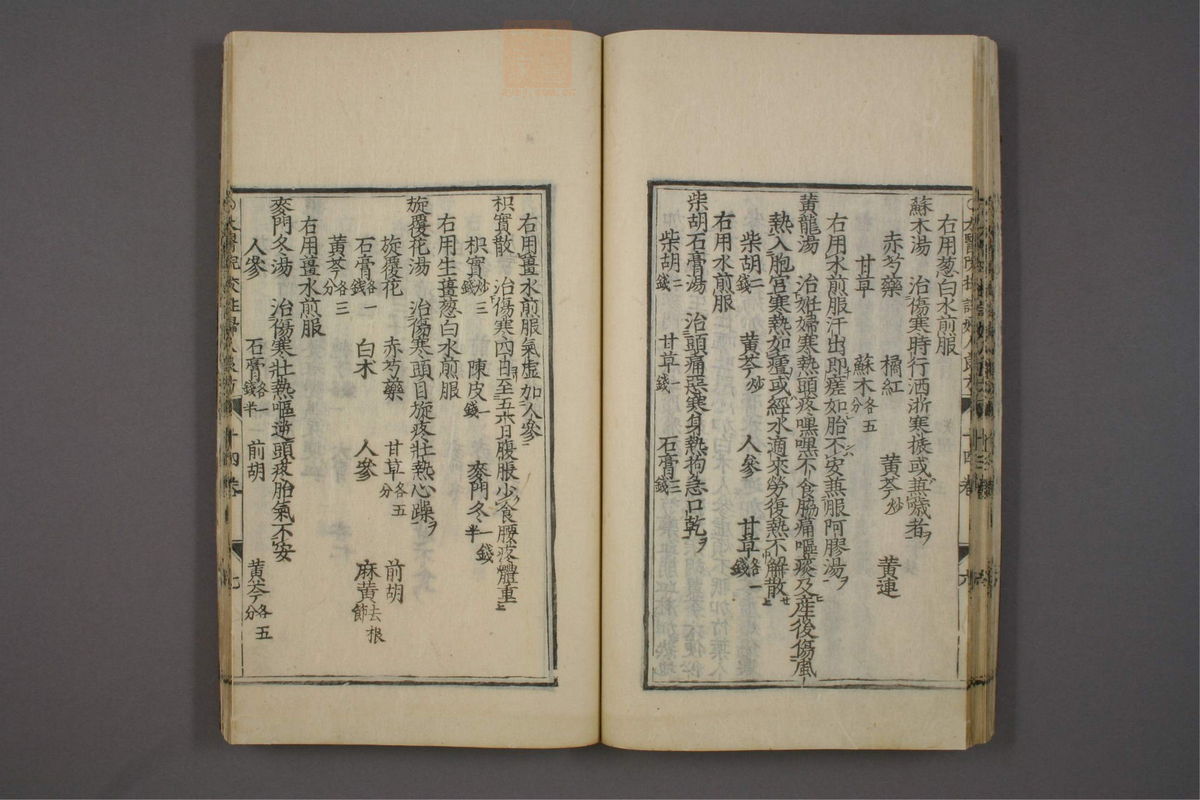 右用葱白水煎服
蘇木湯 治傷寒時行洒浙寒慄或煎噦者
赤芍藥 橘紅 黄芩炒 黄連
甘草 蘇木各五分
右用水煎服汗出即瘥如胎不安兼服阿膠湯
黄龍湯 治妊婦寒熱頭疼嘿嘿不食脇痛嘔痰及産後傷風
熱入胞宫寒熱如瘧或經水適來勞復熱不解散
柴胡二錢 黄芩炒 人參 甘草各一錢
右用水煎服
柴胡石膏湯 治頭痛惡寒身熱拘急口乾
柴胡二錢 甘草一錢 石膏三錢
右用薑水煎服氣虚加人參
枳實散 治傷寒四日至五六日腹脹少食腰疼體重
枳實炒三錢 陳皮一錢 麥門冬一錢半
右用生薑葱白水煎服
旋覆花湯 治傷寒頭目旋疼壮熱心躁
旋覆花 赤芍藥 甘草各五分 前胡
石膏各一錢 白术 人參 麻黄去根節
黄芩各三分
右用薑水煎服
麥門冬湯 治傷寒壮熱嘔逆頭疼胎氣不安
人參 石膏各一錢半 前胡 黄芩各五分
十四卷 七